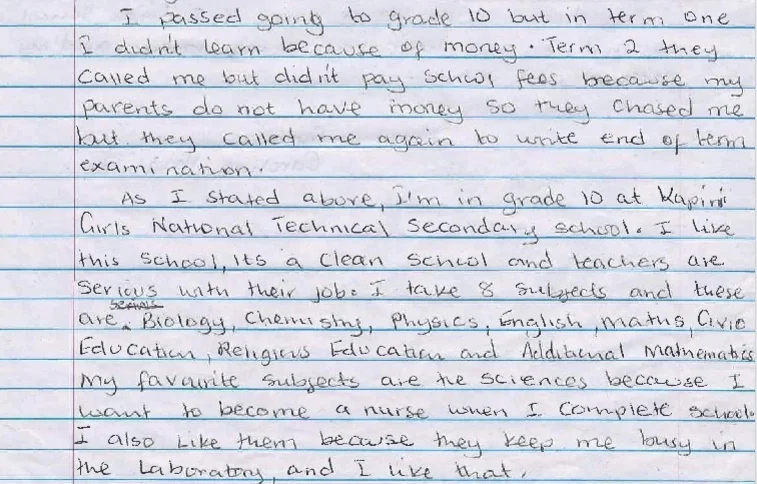 I passed going to grade 10 but in term one
I didn't learn because of money. Term 2 they
called me but didn't pay school fees because my
parents do not have money so they chased me
but they called me again to write end of term
examination.
As I stated above, I'm in grade 10 at Kapiri
Girls National Technical Secondary school. I like
this school, its a clean school and teachers are
serious with their job. I take 8 subjects and these
are Biology, Chemistry, Physics, English, maths, Civic
Education, Religious Education and Additional Mathematics
My favourite subjects are the sciences because I
want to become a nurse when I complete school.
I also like them because they keep me busy in
the Laboratory, and I like that.